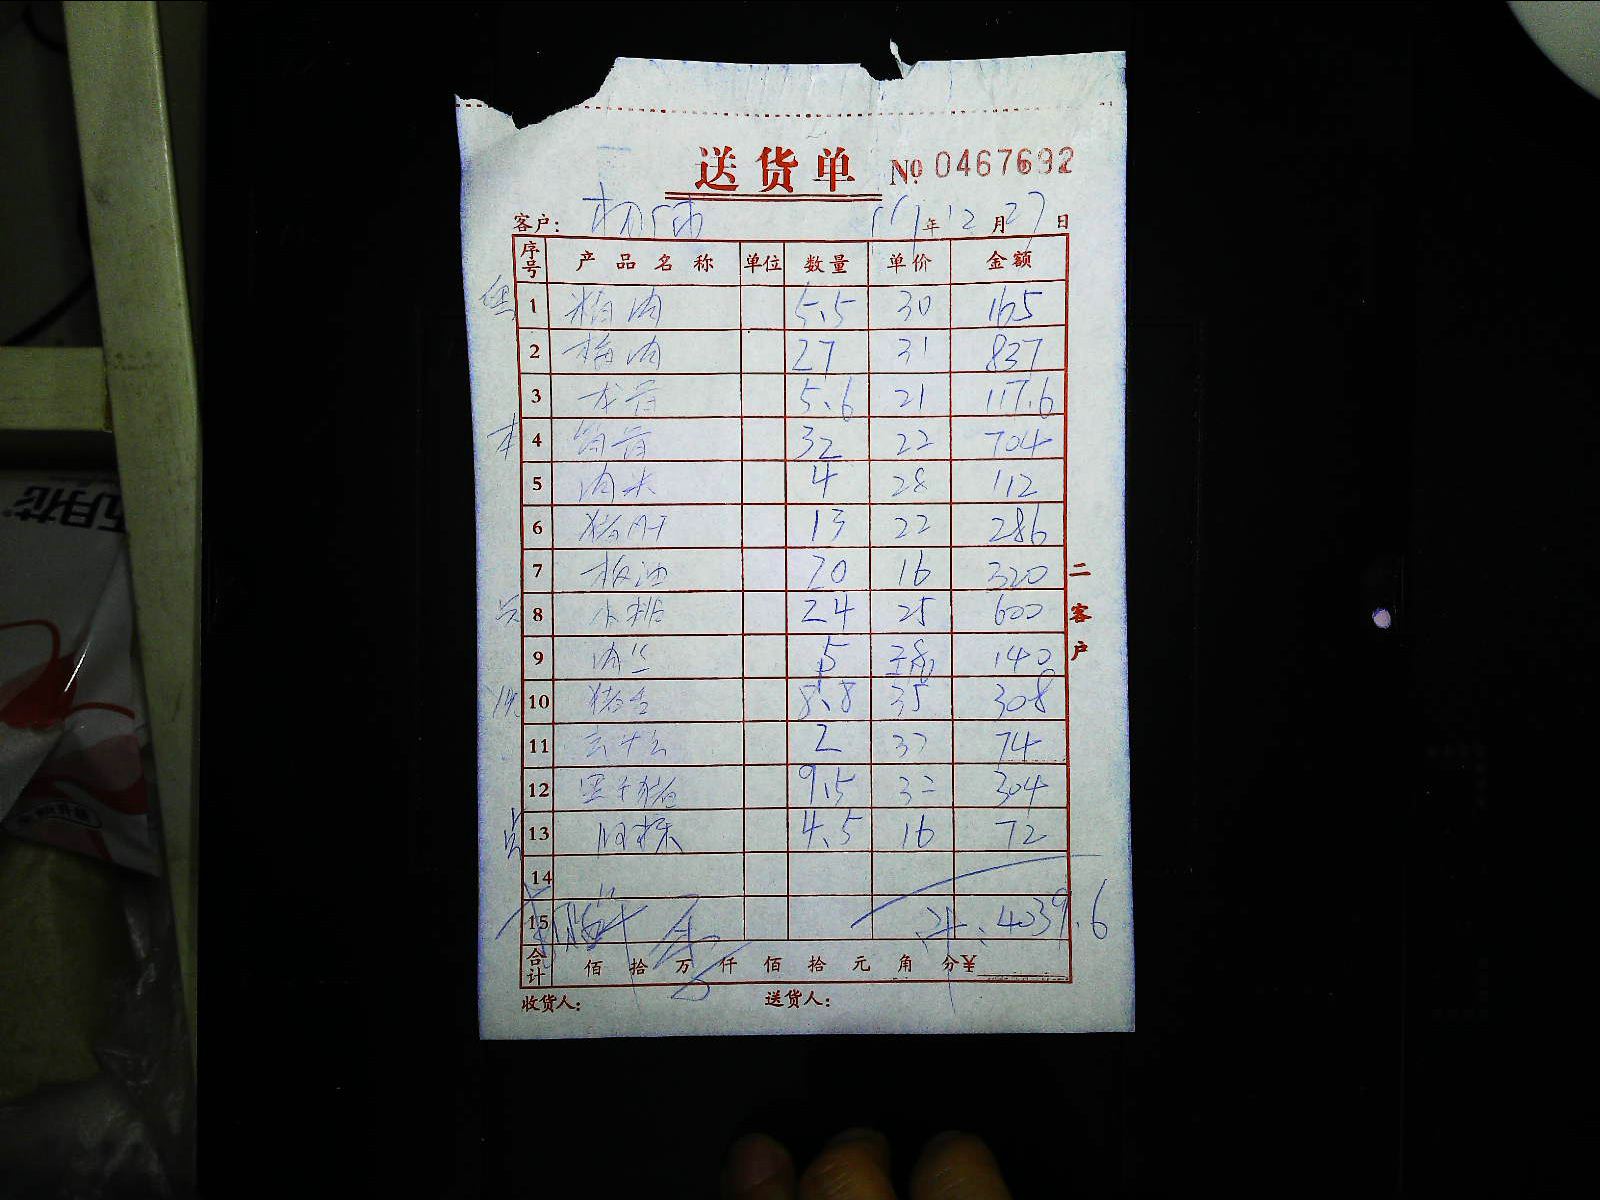 送货单 № 0467692
客户: 年 12 月 27 日
序号 产品名称 单位 数量 单价 金额
1 精肉 5.5 30 165
2 梅肉 27 31 837
3 龙骨 5.6 21 117.6
4 筒骨 32 22 704
5 肉米 4 28 112
6 猪肝 13 22 286
7 板油 20 16 320
8 小排 24 25 600
9 肉丝 5 28 140
10 猪舌 8.8 35 308
11 2 37 74
12 9.5 32 304
13 4.5 16 72
14
15 计: 4039.6
合计 佰 拾 万 仟 佰 拾 元 角 分 ¥
收货人: 送货人:
二客户
五月花